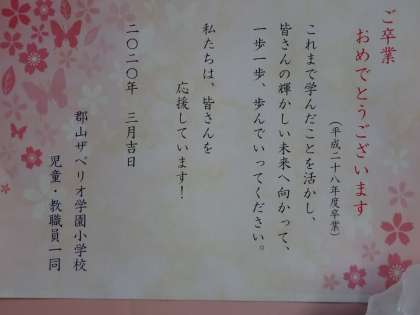 ご卒業
おめでとうございます
(平成二十八年度卒業)
これまで学んだことを活かし、
皆さんの輝かしい未来へ向かって、
一歩一歩、歩んでいってください。
私たちは、皆さんを
応援しています!
二〇二〇年　三月吉日
郡山ザベリオ学園小学校
児童・教職員一同